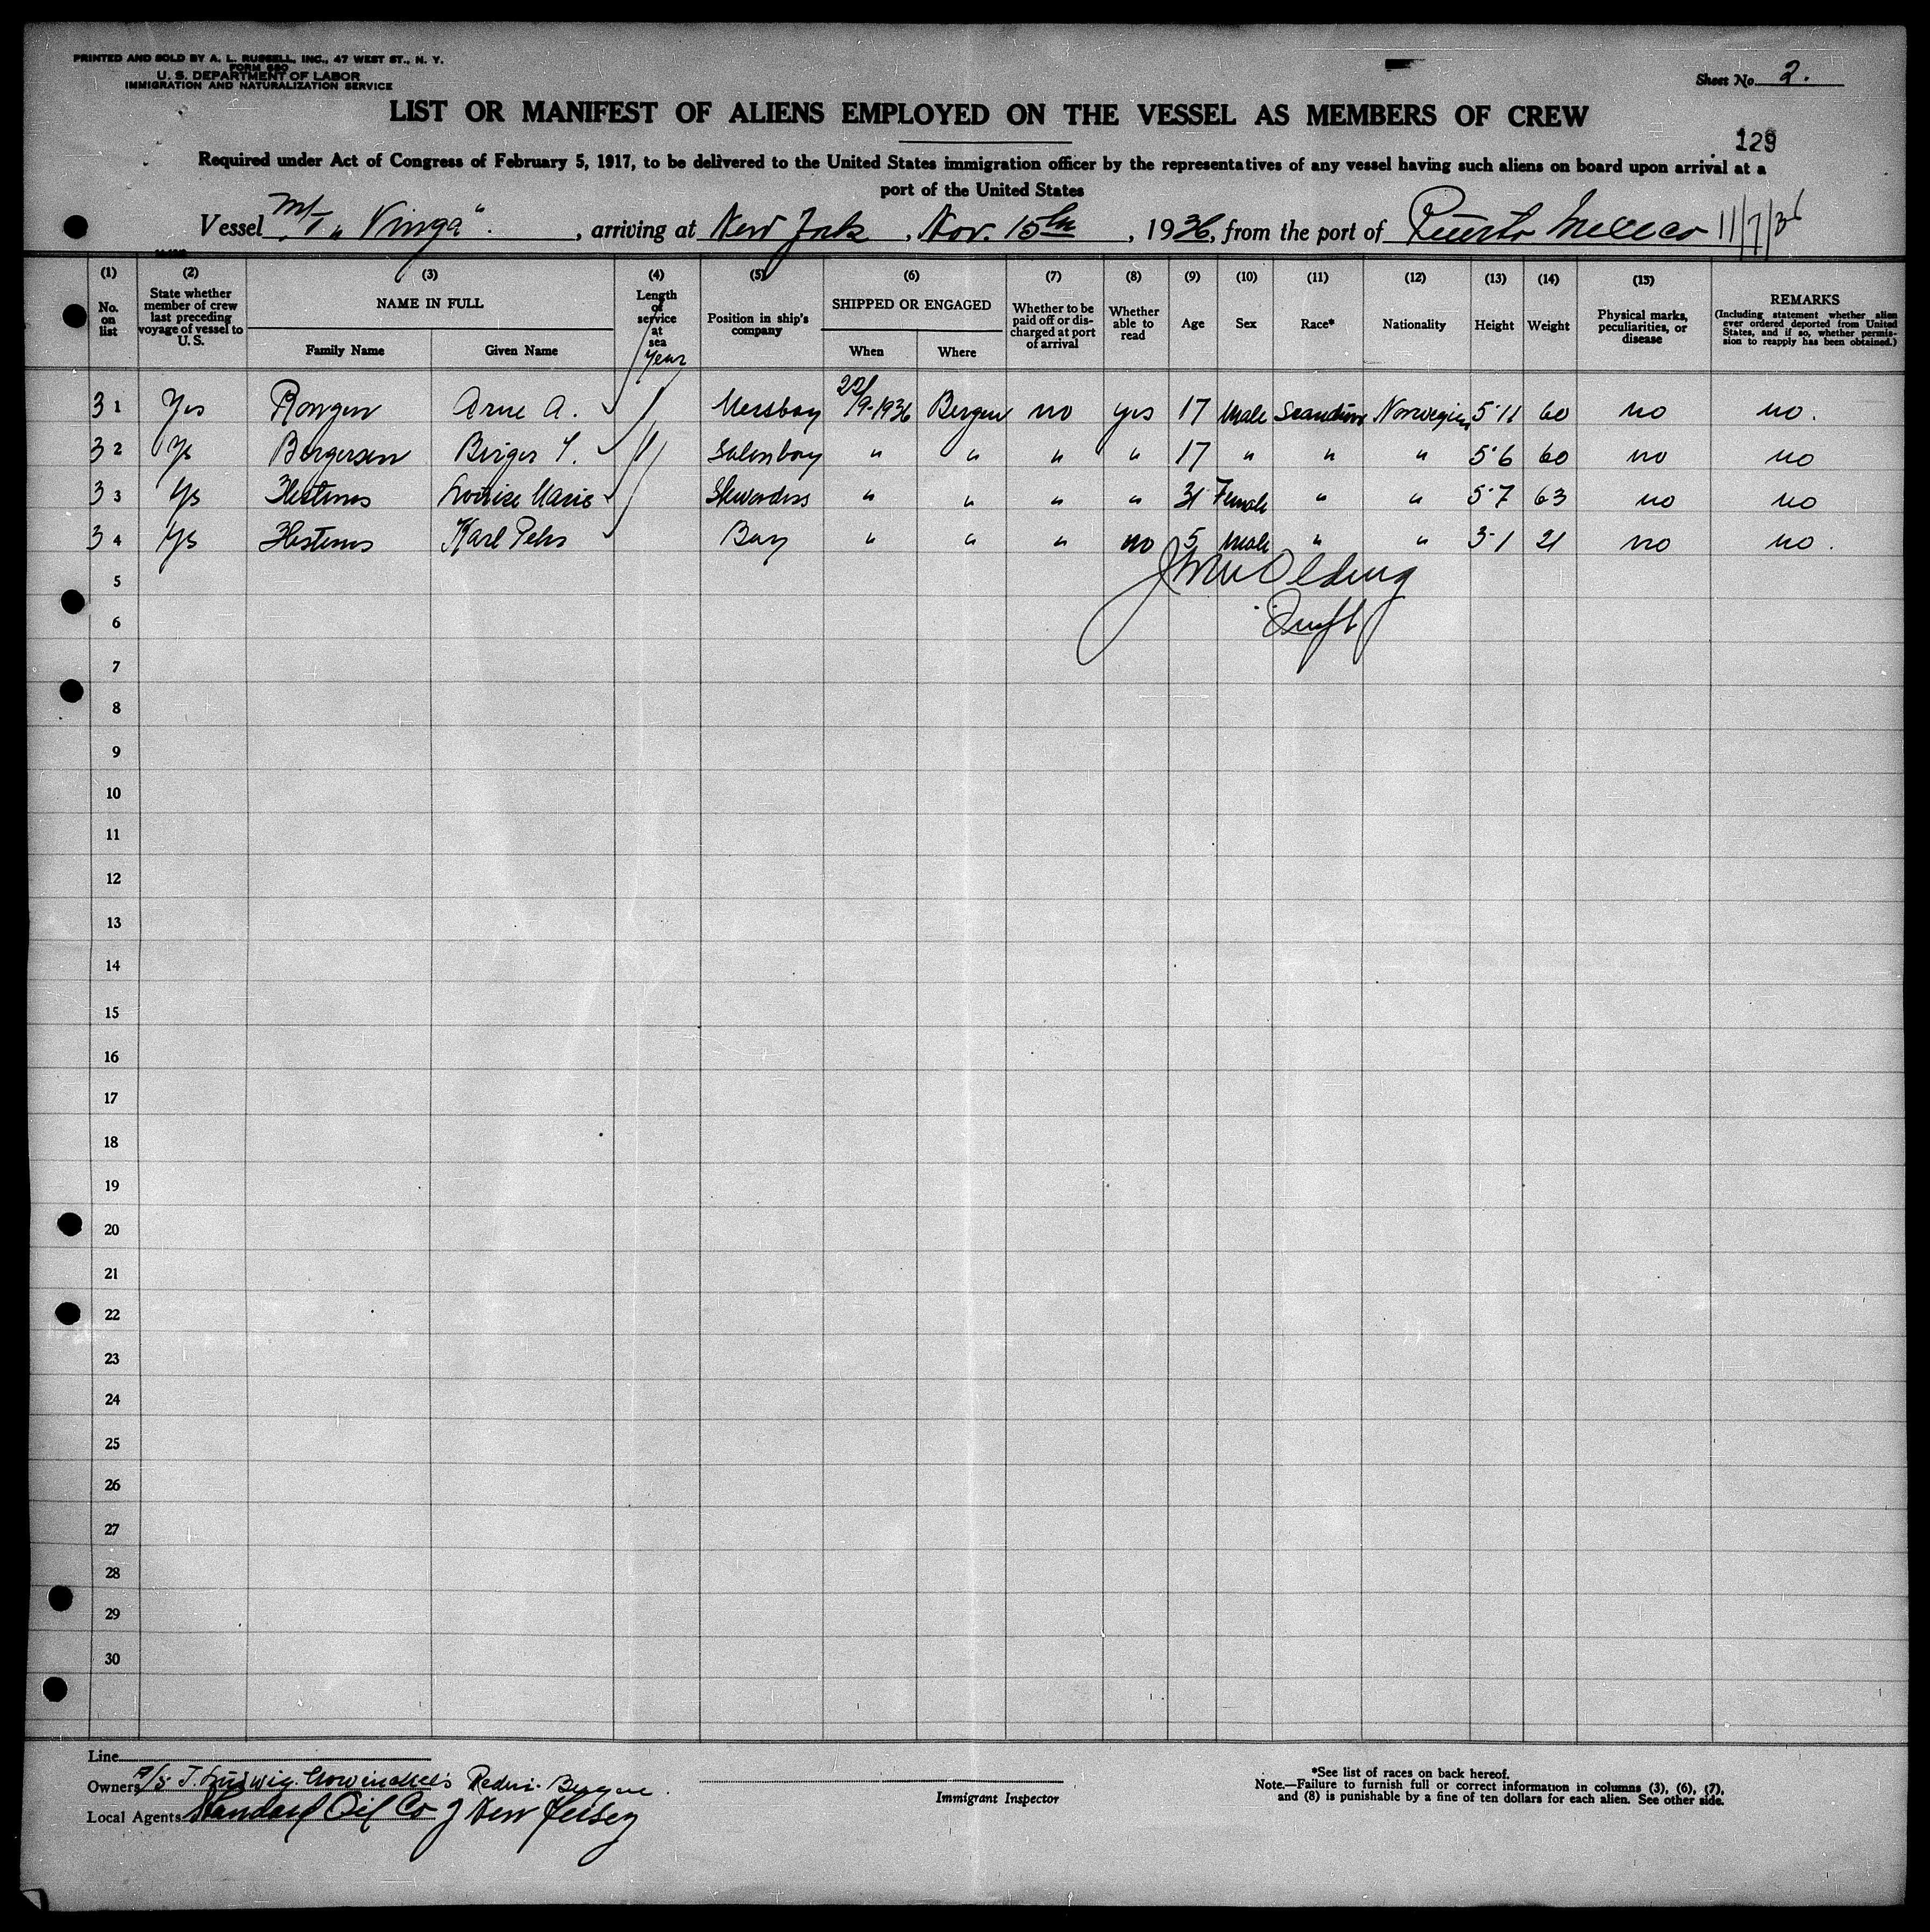 PRINTED AND SOLD BY A. L. RUSSELL, INC., 47 WEST ST., N. Y.
FORM 680
U. S. DEPARTMENT OF LABOR
IMMIGRATION AND NATURALIZATION SERVICE
Sheet No. 2.
LIST OR MANIFEST OF ALIENS EMPLOYED ON THE VESSEL AS MEMBERS OF CREW
129
Required under Act of Congress of February 5, 1917, to be delivered to the United States immigration officer by the representatives of any vessel having such aliens on board upon arrival at a
port of the United States
Vessel M/T „Vinga“., arriving at New York, Nov. 15th, 1936, from the port of Puerto Mexico 11/7/36
(1) (2) (3) (4) (5) (6) (7) (8) (9) (10) (11) (12) (13) (14) (15)
No. on list
State whether member of crew last preceding voyage of vessel to U. S.
NAME IN FULL
Family Name Given Name
Length of service at sea
Year
Position in ship's company
SHIPPED OR ENGAGED
When Where
Whether to be paid off or discharged at port of arrival
Whether able to read
Age Sex Race* Nationality Height Weight
Physical marks, peculiarities, or disease
REMARKS
(Including statement whether alien ever ordered deported from United States, and if so, whether permission to reapply has been obtained.)
31 Yes Rongen Arne A. Messboy 22/9-1936 Bergen no yes 17 Male Norwegian 5·11 60 no no.
32 Ys Bergersen Birger Salonboy " " " " 17 " " " 5·6 60 no no
33 Ys Louise Marie " " " " 31 Female " " 5·7 63 no no
34 Ys Karl Boy " " " no 5 Male " " 3·1 21 no no.
5
6
7
8
9
10
11
12
13
14
15
16
17
18
19
20
21
22
23
24
25
26
27
28
29
30
Line
Owners A/S J. Ludwig Mowinckel's Rederi. Bergen.
Local Agents Standard Oil Co of New Jersey
Immigrant Inspector
*See list of races on back hereof.
Note.—Failure to furnish full or correct information in columns (3), (6), (7),
and (8) is punishable by a fine of ten dollars for each alien. See other side.